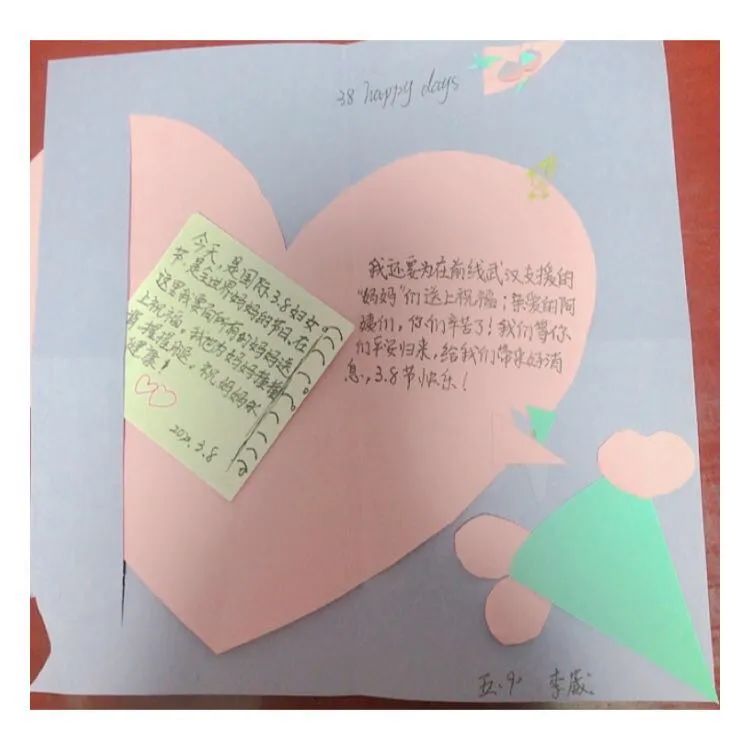 38 happy days
今天,是国际3.8妇女
节,是全世界妈妈的节日。在
这里我要向所有的妈妈送
上祝福。我也为妈妈捶捶
背,腿。祝妈妈永
健康!
2020.3.8
我还要为在前线武汉支援的
“妈妈”们送上祝福;亲爱的阿
姨们,你们辛苦了!我们等你
们平安归来,给我们带来好消
息,3.8节快乐!
五.9. 李